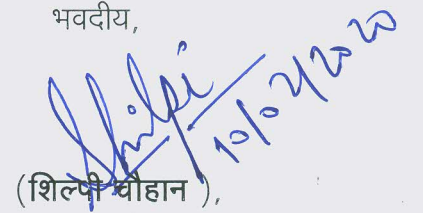 भवदीय,
Shilpi
10/02/2020
(शिल्पी चौहान ),